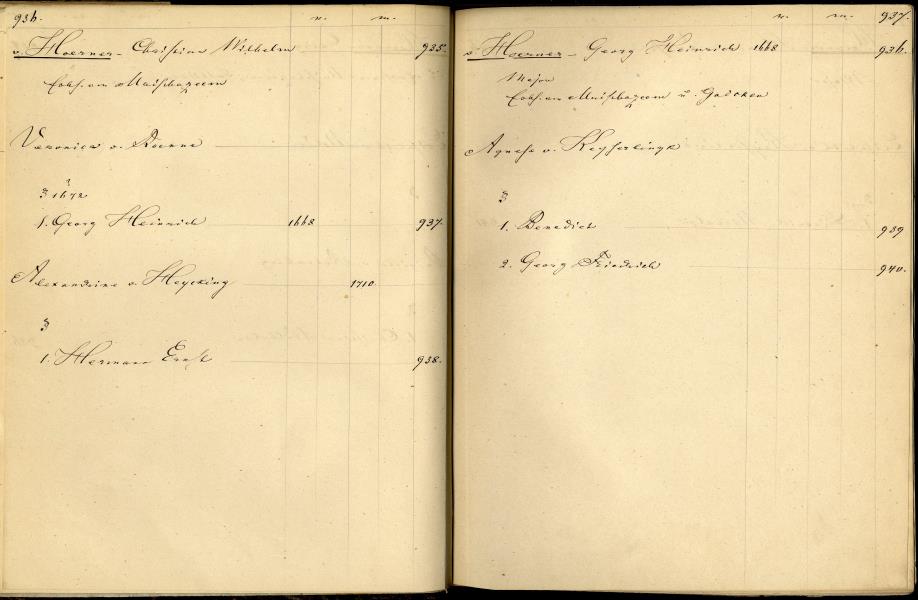 936. n. m.
v. Hoerner - Christian Wilhelm 935.
Erbh. on
Veronica v. Koenne
? 
3 1672
1. Georg Heinrich 1668 937.
Alexandrine v. Heycking 1710
3
1. Hermann Ernst 938.
n. m. 937.
v. Hoerner - Georg Heinrich 1668 936.
Major
u.
Agnesa v. Keyserlingk
3
1. Benedict 939
2. Georg Friedrich 940.